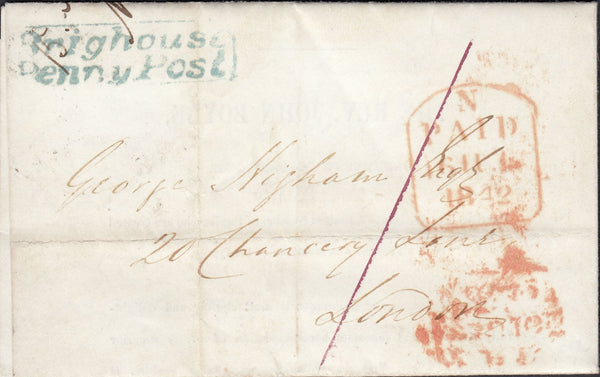 Brighouse
Penny Post
N
PAID
1842
George Higham Esqr
20 Chancery Lane
London